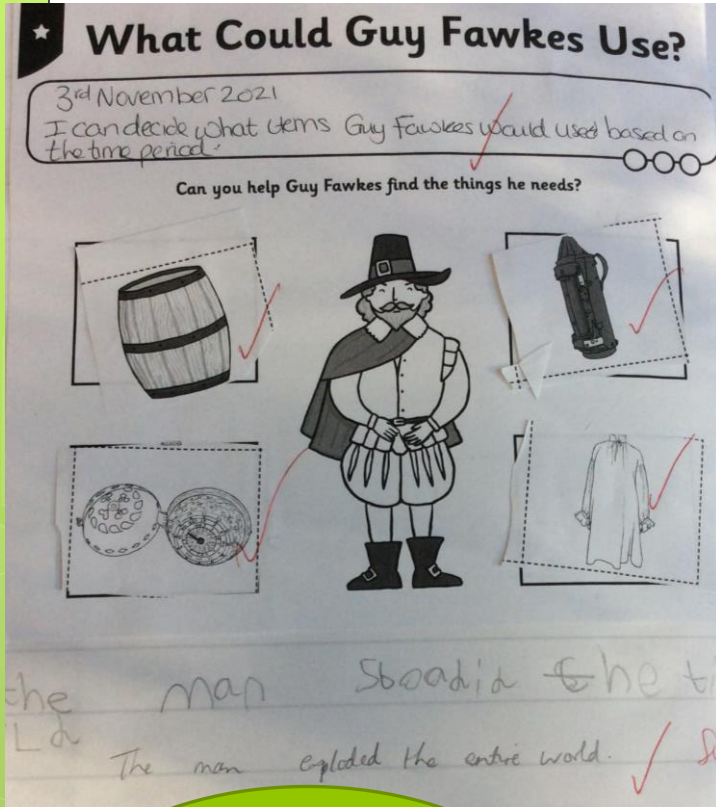 What Could Guy Fawkes Use?
3rd November 2021
I can decide what items Guy Fawkes would used based on
the time period.
Can you help Guy Fawkes find the things he needs?
the man the
The man exploded the entire world.